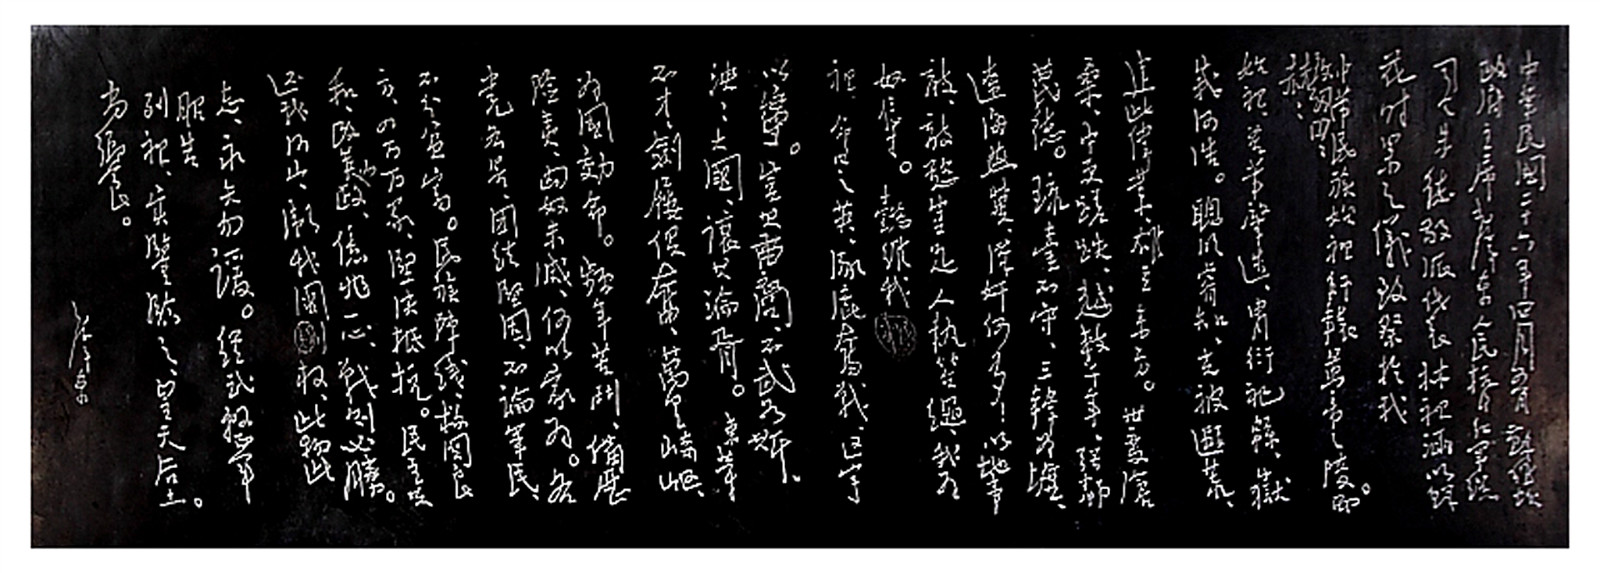 中華民國二十六年四月五日蘇維埃
政府主席毛澤東人民抗日紅軍總
司令朱德敬派代表林祖涵以鮮
花時果之儀致祭於我
中華民族始祖軒轅黃帝之陵。而
致詞曰:
赫赫
始祖、吾華肇造、胄衍祀綿、嶽
峨河浩。聰明睿知、光被遐荒、
建此偉業、雄立東方。世變滄
桑、中更蹉跌、越數千年、强鄰
蔑德。琉臺不守、三韓為墟、
遼海燕冀、漢奸何多!以地事
敵、敵慾豈足、人執笞繩、我為
奴辱。懿維我
祖、命世之英、涿鹿奮戰、區宇
以寧。豈其苗裔、不武如斯、
泱泱大國、讓其淪胥。東等
不才、劍屨俱奮、萬里崎岖、
為國效命。頻年苦鬥、備歷
險夷、匈奴未滅、何以家為。各
党各界、團結堅固、不論軍民、
不分貧富。民族陣綫、救國良
方、四万万衆、堅決抵抗。民主共
和、改革内政、億兆一心、戰則必勝。
還我河山、衛我國權、此物此
志、永矢勿諼。經武整軍
昭告
列祖、實鑒臨之、皇天后土。
尚饗。
澤東